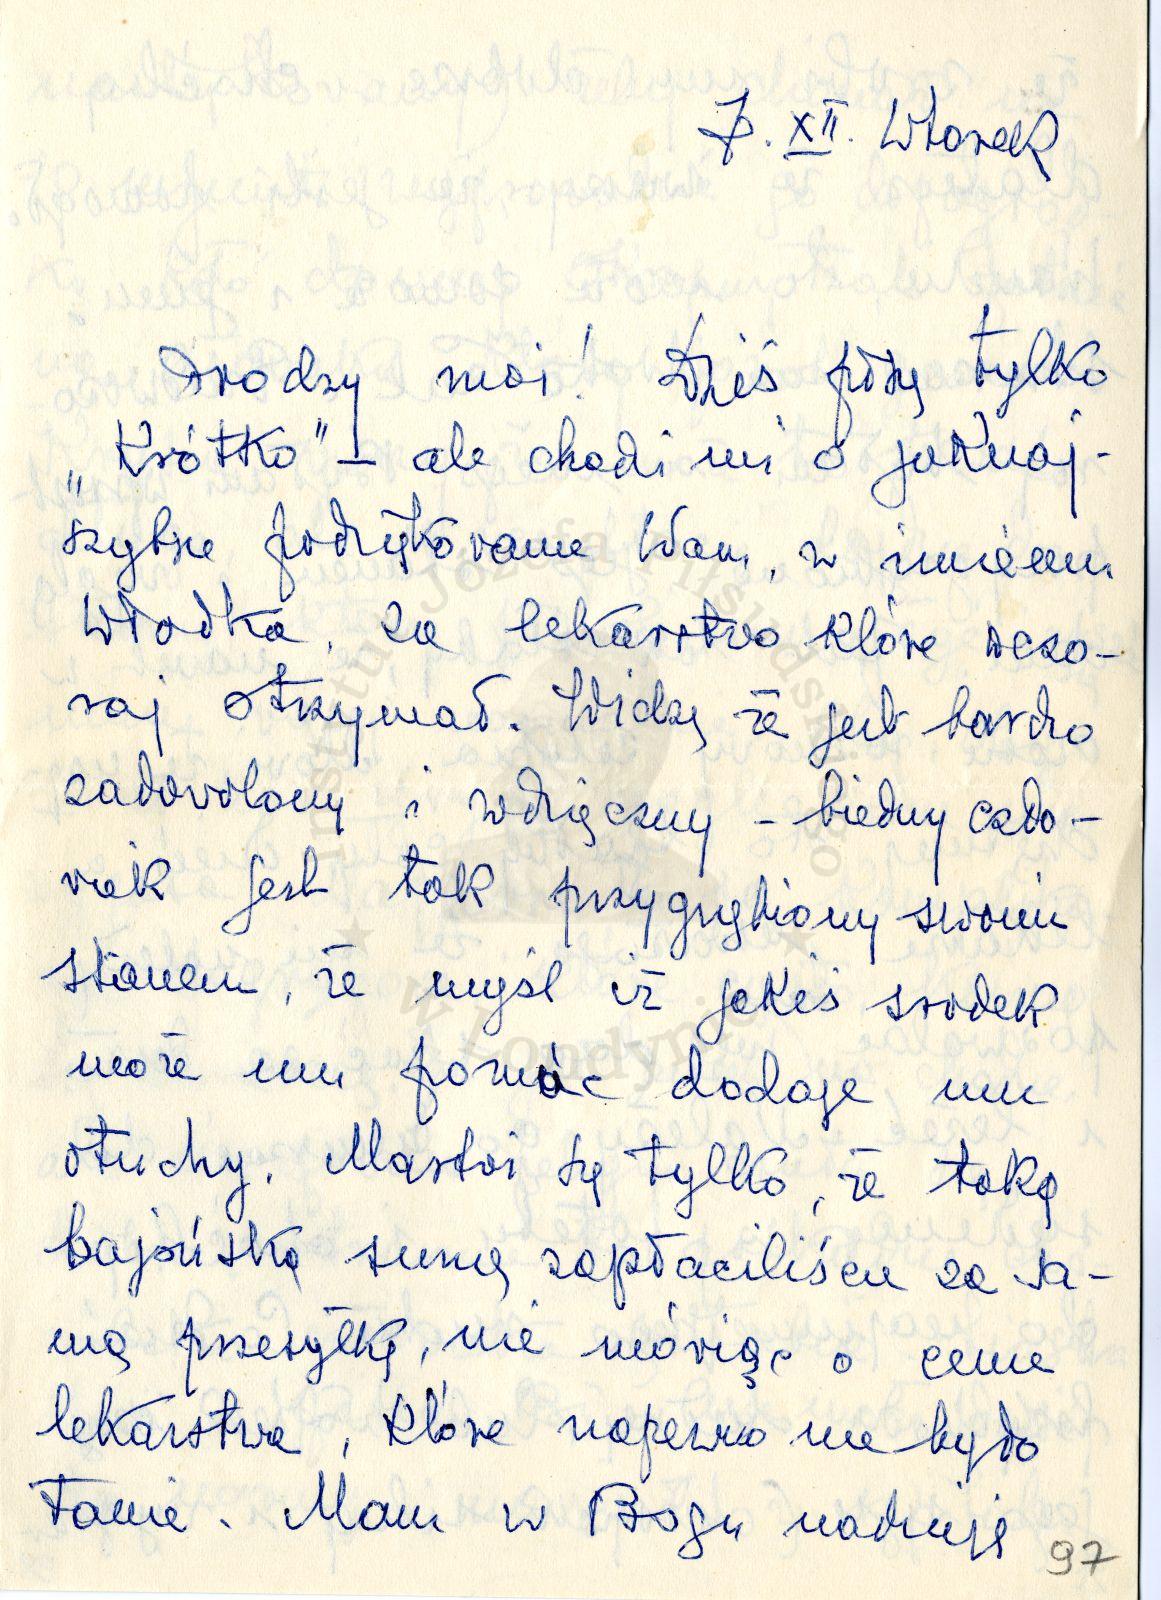 7. XII. Wtorek
Drodzy moi! Dziś piszę tylko
„Krótko" – ale chodzi mi o jaknaj-
szybsze podziękowanie Wam, w imieniu
Włodka, za lekarstwo które wczo-
raj otrzymał. Widzę że jest bardzo
zadowolony i wdzięczny – biedny czło-
wiek jest tak przygnębiony swoim
stanem, że myśl iż jakiś środek
może mu pomóc dodaje mu
otuchy. Martwi się tylko, że taką
bajońską sumę zapłaciliście za sa-
mą przesyłkę, nie mówiąc o cenie
lekarstwa, które napewno nie było
tanie. Mam w Bogu nadzieję
97
Instytut Józefa Piłsudskiego
w Londynie